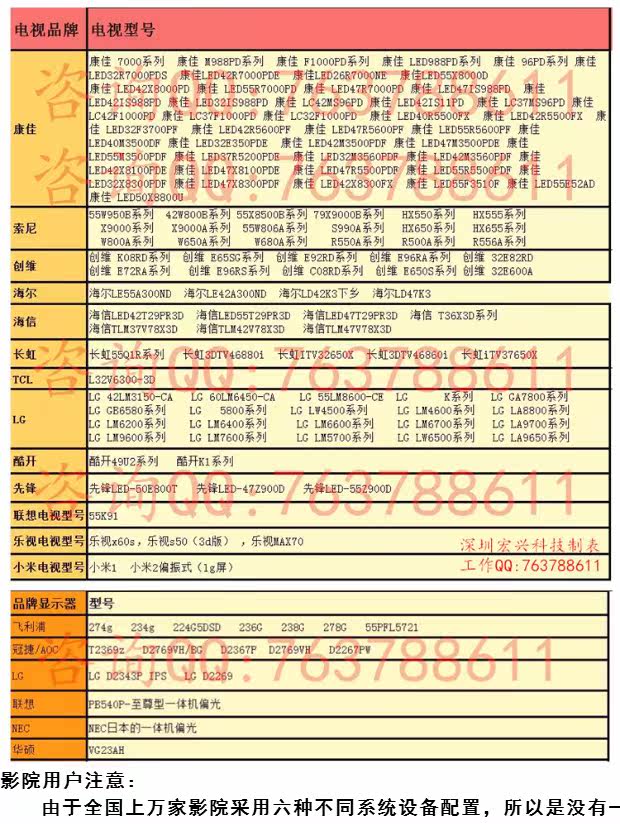 电视品牌 电视型号
康佳 7000系列 康佳 M988PD系列 康佳 F1000PD系列 康佳 LED988PD系列 康佳 96PD系列 康佳
LED32R7000PDS 康佳LED42R7000PDE 康佳LED26R7000NE 康佳LED55X8000D
康佳 LED42X8000PD 康佳 LED55R7000PD 康佳 LED47R7000PD 康佳 LED47IS988PD 康佳
LED42IS988PD 康佳 LED32IS988PD 康佳 LC42MS96PD 康佳 LED42IS11PD 康佳 LC37MS96PD 康佳
LC42F1000PD 康佳 LC37F1000PD 康佳 LC32F1000PD 康佳 LED40R5500FX 康佳 LED42R5500FX 康
康佳
佳 LED32F3700PF 康佳 LED42R5600PF 康佳 LED47R5600PF 康佳 LED55R5600PF 康佳
LED40M3500DF 康佳 LED32E350PDE 康佳 LED42M3500PDF 康佳 LED47M3500PDE 康佳
LED55M3500PDF 康佳 LED37R5200PDE 康佳 LED32M3560PDF 康佳 LED42M3560PDF 康佳
LED42X8100PDE 康佳 LED47X8100PDE 康佳 LED47R5500PDF 康佳 LED55R5500PDF 康佳
LED32X8300PDF 康佳 LED47X8300PDF 康佳 LED42X8300FX 康佳 LED55F3510F 康佳 LED55E52AD
康佳 LED50X8800U
索尼
55W950B系列 42W800B系列 55X8500B系列 79X9000B系列 HX550系列 HX555系列
X9000系列 X9000A系列 55W806A系列 S990A系列 HX650系列 HX655系列
W800A系列 W650A系列 W680A系列 R550A系列 R500A系列 R556A系列
创维
创维 K08RD系列 创维 E65SG系列 创维 E92RD系列 创维 E96RA系列 创维 32E82RD
创维 E72RA系列 创维 E96RS系列 创维 C08RD系列 创维 E650S系列 创维 32E600A
海尔 海尔LE55A300ND 海尔LE42A300ND 海尔LD42K3下乡 海尔LD47K3
海信
海信LED42T29PR3D 海信LED55T29PR3D 海信LED47T29PR3D 海信 T36X3D系列
海信TLM37V78X3D 海信TLM42V78X3D 海信TLM47V78X3D
长虹 长虹55Q1R系列 长虹3DTV46880i 长虹ITV32650X 长虹3DTV46860i 长虹iTV37650X
TCL L32V6300-3D
LG
LG 42LM3150-CA LG 60LM6450-CA LG 55LM8600-CE LG K系列 LG GA7800系列
LG GE6580系列 LG 5800系列 LG LW4500系列 LG LM4600系列 LG LA8800系列
LG LM6200系列 LG LM6400系列 LG LM6600系列 LG LM6700系列 LG LA9700系列
LG LM9600系列 LG LM7600系列 LG LM5700系列 LG LW6500系列 LG LA9650系列
酷开 酷开49U2系列 酷开K1系列
先锋 先锋LED-50E800T 先锋LED-47Z900D 先锋LED-55Z900D
联想电视型号 55K91
乐视电视型号 乐视x60s，乐视s50（3d版） ，乐视MAX70
深圳宏兴科技制表
小米电视型号 小米1 小米2偏振式（lg屏）
工作QQ:763788611
品牌显示器 型号
飞利浦 274g 234g 224G5DSD 236G 238G 278G 55PFL5721
冠捷/AOC T2369z D2769VH/BG D2367F D2769VH D2267PW
LG LG D2343P IPS LG D2269
联想 PE540P-至尊型一体机偏光
NEC NEC日本的一体机偏光
华硕 VG23AH
咨询QQ:763788611
咨询QQ:763788611
咨询QQ:763788611
咨询QQ:763788611
咨询QQ:763788611
影院用户注意：
由于全国上万家影院采用六种不同系统设备配置，所以是没有一